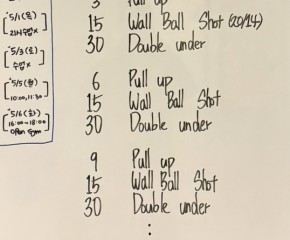 5/1(목)
21시 수업 x
5/3(토)
수업 x
5/5(월)
10:00, 11:30
5/6(화)
16:00-18:00
open gym
3 Pull up
15 Wall Ball Shot (20/14)
30 Double under
6 Pull up
15 Wall Ball Shot
30 Double under
9 Pull up
15 Wall Ball Shot
30 Double under
: